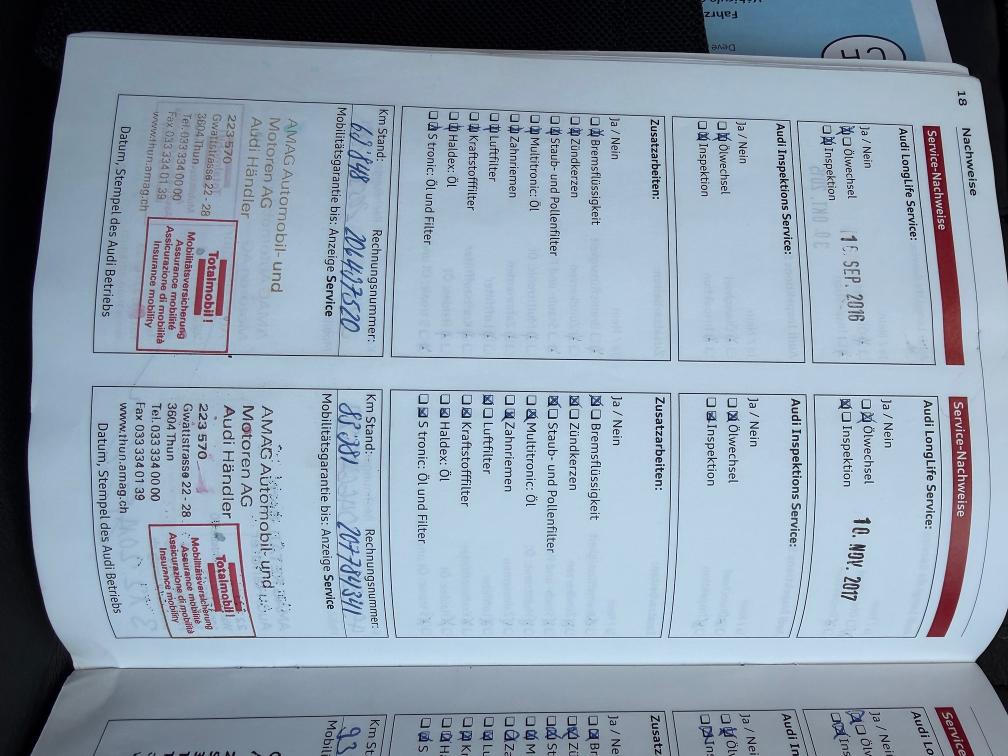 18
Nachweise
Service-Nachweise
Audi LongLife Service:
Ja / Nein
Ölwechsel
Inspektion
SEP. 2016
Audi Inspektions Service:
Ja / Nein
Ölwechsel
Inspektion
Zusatzarbeiten:
Ja / Nein
Bremsflüssigkeit
Zündkerzen
Staub- und Pollenfilter
Multitronic: Öl
Zahnriemen
Luftfilter
Kraftstofffilter
Haldex: Öl
S tronic: Öl und Filter
Km Stand: Rechnungsnummer:
Mobilitätsgarantie bis: Anzeige Service
AMAG Automobil- und
Motoren AG
Audi Händler
223 570
Gwattstrasse 22 - 28
3604 Thun
Tel. 033 334 00 00
Fax 033 334 01 39
www.thun.amag.ch
Totalmobil!
Mobilitätsversicherung
Assurance mobilité
Assicurazione di mobilità
Insurance mobility
Datum, Stempel des Audi Betriebs
Service-Nachweise
Audi LongLife Service:
Ja / Nein
Ölwechsel
Inspektion
10. NOV. 2017
Audi Inspektions Service:
Ja / Nein
Ölwechsel
Inspektion
Zusatzarbeiten:
Ja / Nein
Bremsflüssigkeit
Zündkerzen
Staub- und Pollenfilter
Multitronic: Öl
Zahnriemen
Luftfilter
Kraftstofffilter
Haldex: Öl
S tronic: Öl und Filter
Km Stand: Rechnungsnummer:
83'381 207784341
Mobilitätsgarantie bis: Anzeige Service
AMAG Automobil- und
Motoren AG
Audi Händler
223 570
Gwattstrasse 22 - 28
3604 Thun
Tel. 033 334 00 00
Fax 033 334 01 39
www.thun.amag.ch
Totalmobil!
Mobilitätsversicherung
Assurance mobilité
Assicurazione di mobilità
Insurance mobility
Datum, Stempel des Audi Betriebs